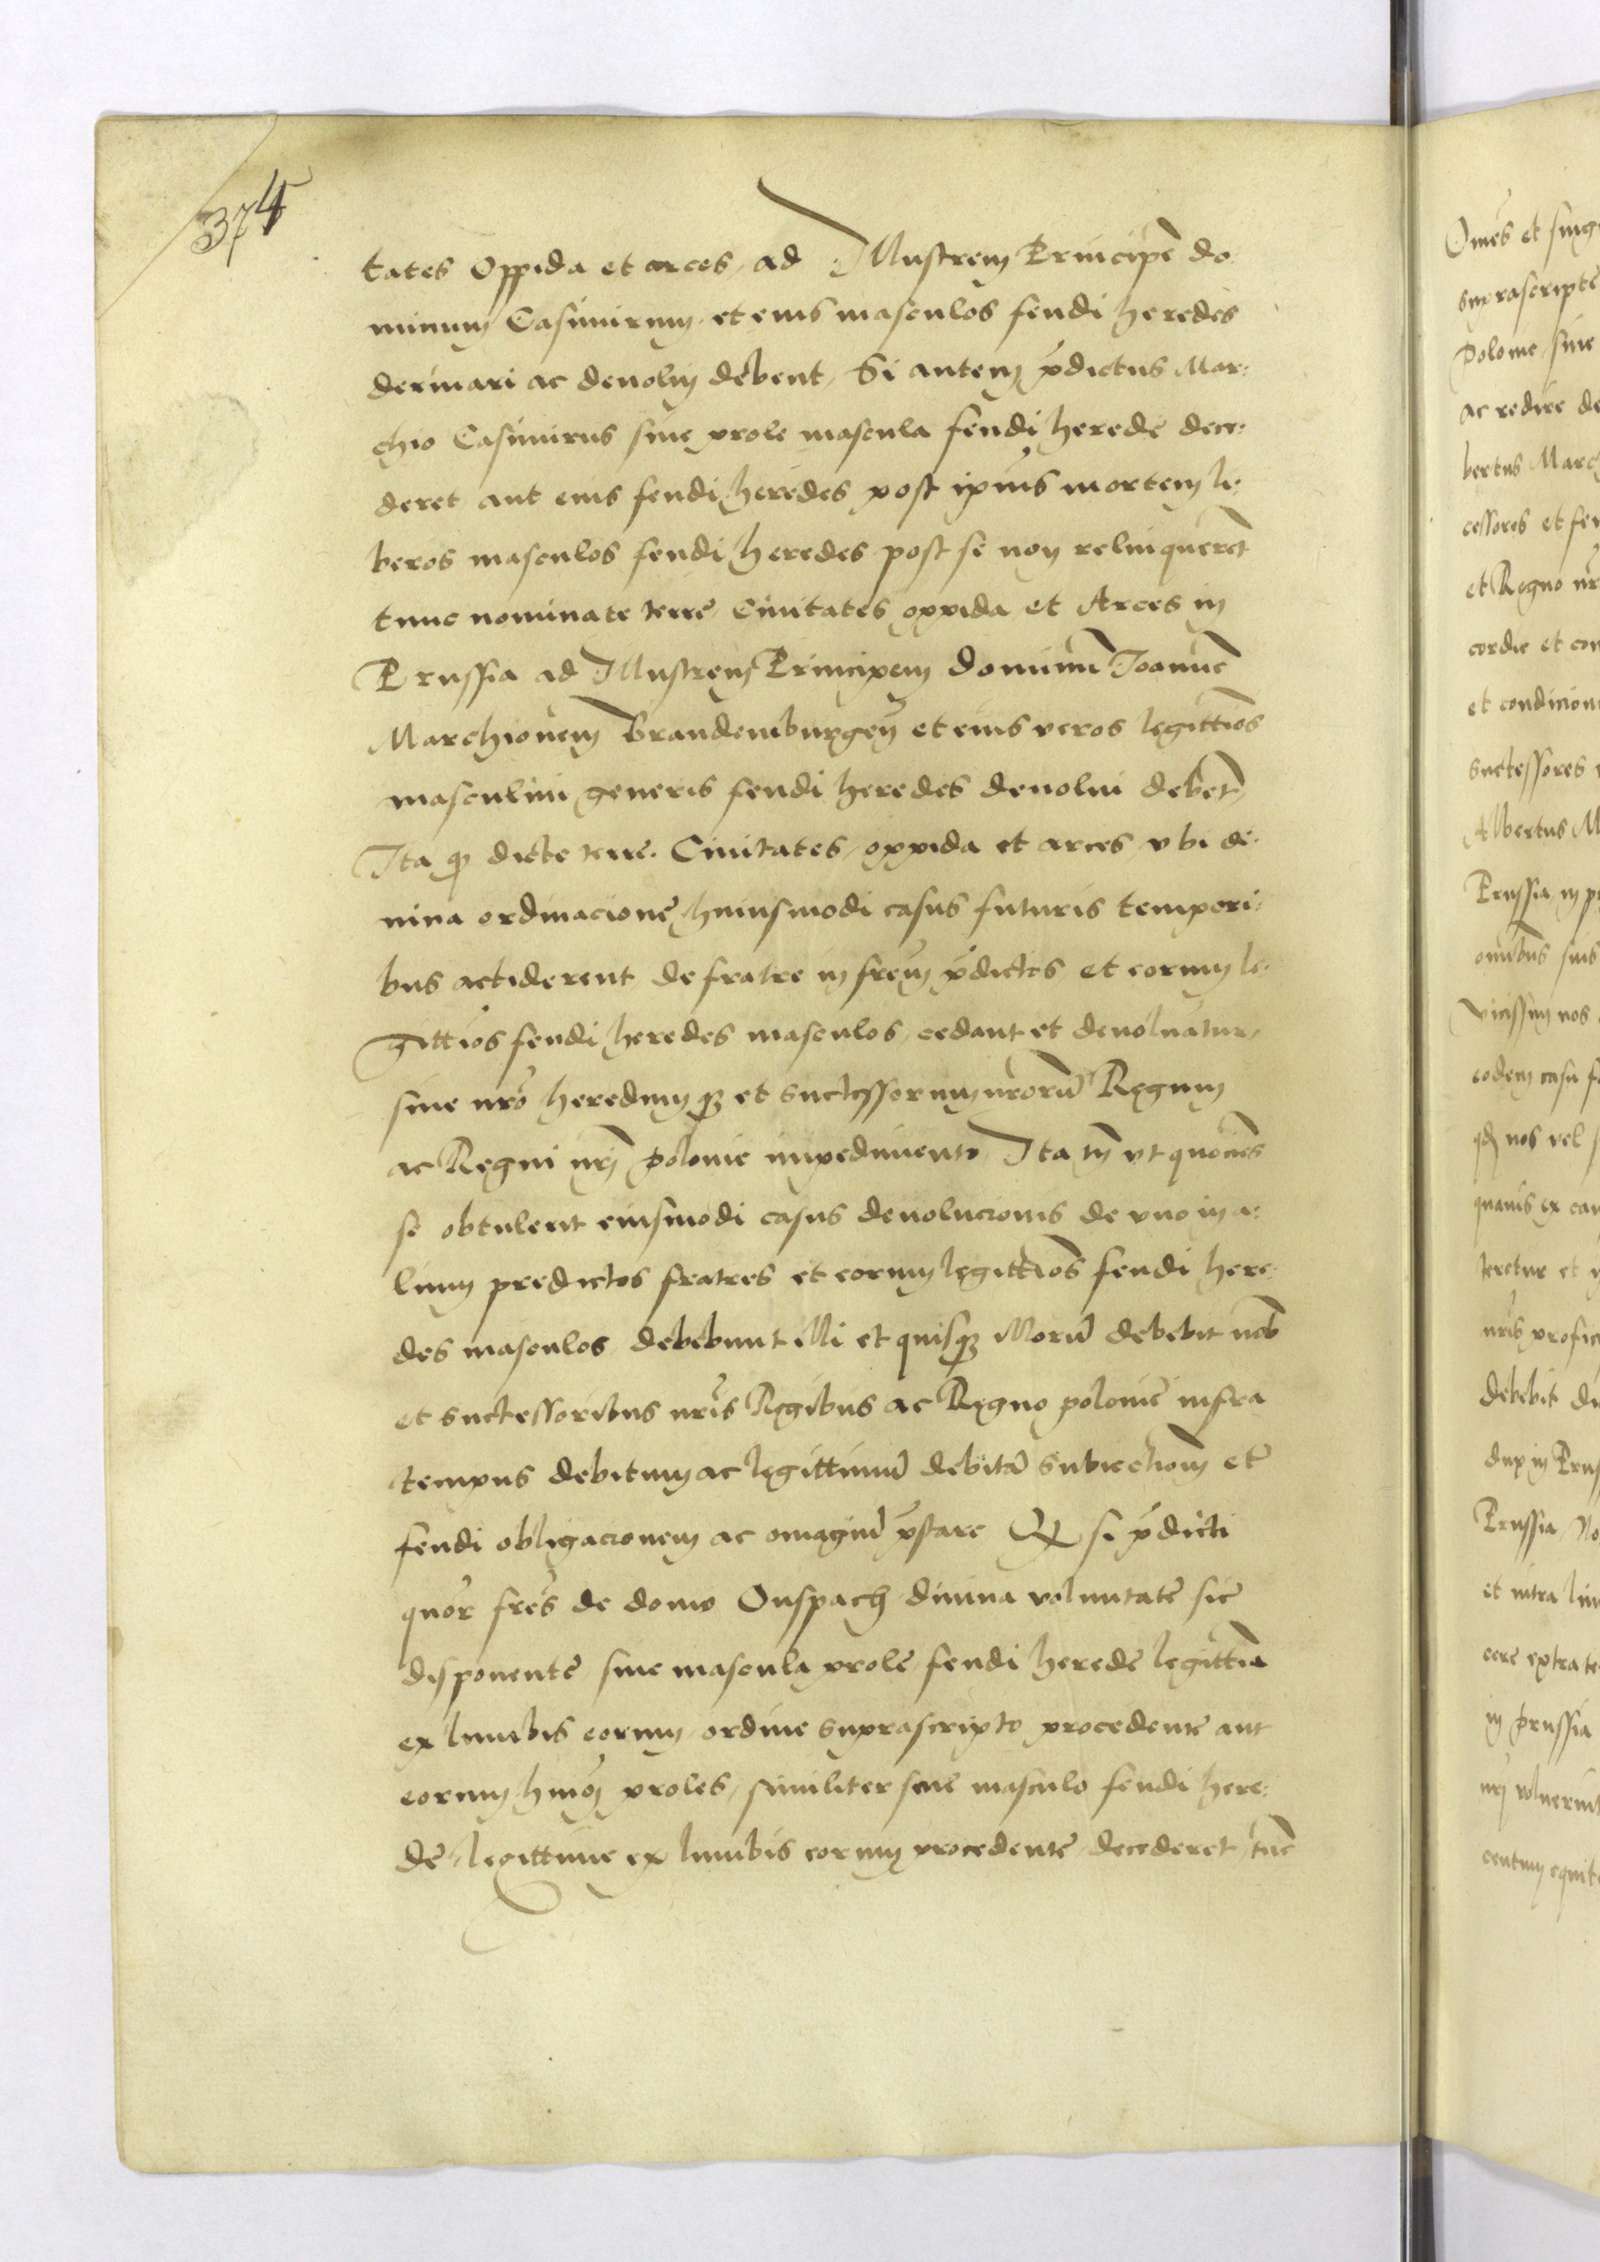 374
tates Oppida et arces, ad Illustrem Principē do
minum Casimirum et eius masculos feudi heredes
deriuari ac deuolui debent, Si autem p̄dictus Mar:
chio Casimirus sine prole mascula feudi herede dece:
deret aut eius feudi heredes post ipius mortem li:
beros masculos feudi heredes post se non relinquerēt
tunc nominate terre Ciuitates oppida et Arces in
Prussia ad Illustrem Principem dominū Joannē
Marchionem Brandemburgeñ et eius veros legittīos
masculini generis feudi heredes deuolui debēt,
Ita q̨ dicte terre. Ciuitates, oppida et arces vbi de:
uina ordinacione huiusmodi casus futuris tempori:
bus acciderent de fratre in frēm p̄dictos et eorum le:
gittīos feudi heredes masculos, cedant et deuoluātur,
sine nr̄o heredum q̨ et successorum nr̄orū Regum
ac Regni nr̄i Polonie impedimento, Ita tn̄ vt quociēs
se obtulerit eiusmodi casus deuolucionis de vno in a:
lium predictos fratres et eorum legittīos feudi here:
des masculos debebunt illi et quisq̨ illorū debebit nob̄
et successoribus nr̄is Regibus ac Regno polonie infra
tempus debitum ac legittimū debitā subiectionem et
feudi obligacionem ac omagiū p̄stare Qd̄ si p̄dicti
quor fr̄es de domo Onspach diuina voluntate sic
disponente sine mascula prole feudi herede legittīa
ex lumbis eorum ordine suprascripto procedente aut
eorum hmōi proles, similiter sine masculo feudi here:
de legittime ex lumbis eorum procedente decederet, tūc
Om̄es et sing
suprascripte
Polonie, siue
ac redire de
bertus March
cessores et feu
et Regno nr̄
cordie et con
et condicion
successores
Albertus M
Prussia in p
omnibus suis
vicissim nos
eodem casu
qd̄ nos vel
quauis ex cau
teretur et
nr̄is profic
debebit
dux in Prus
Prussia, No
et intra lim
cere extra te
in prussia
nr̄i voluerint
centum equit